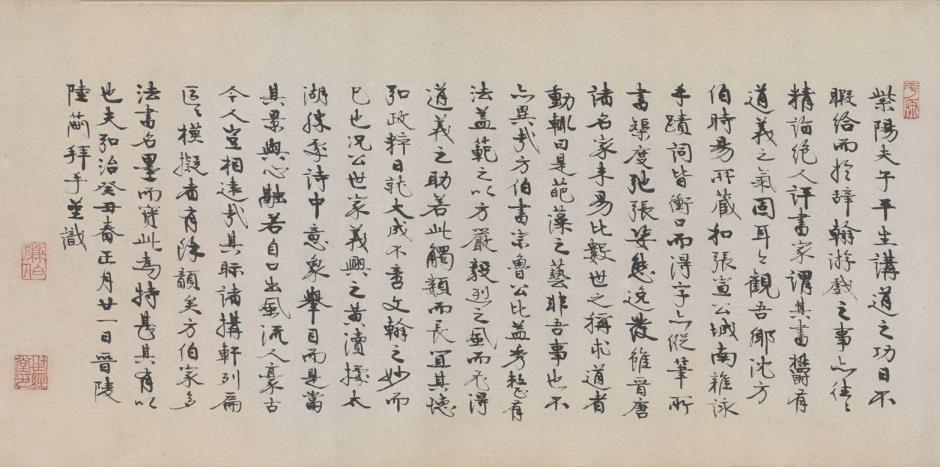 紫陽夫子平生講道之功日不
暇給而於辞翰游戲之事亦往々
精詣絕人評書家謂其書欝有
道義之氣固耳々觀吾鄉沈方
伯時暘所藏和張宣公城南雜詠
手蹟詞皆衝口而得字亦從筆所
書榘度弛張姿態逸發雖晋唐
諸名家未易比數世之稱求道者
動輒曰是葩藻之藝非吾事也不
亦異哉方伯書宗魯公比益考整有
法蓋範之以方嚴毅烈之風而尤得
道義之助若此觸類而長宜其德
弘政粹日就大成不啻文翰之妙而
已也況公世家義興之黄瀆據太
湖
詩中意象舉目而是當
其景與心融若自口出風流人豪古
今人豈相遠哉其眎諸搆軒列扁
區々模擬者有餘顏矣方伯家多
法書名墨而寶此為特甚其有以
也夫弘治癸丑春正月廿一日晋陵
陸簡拜手並識